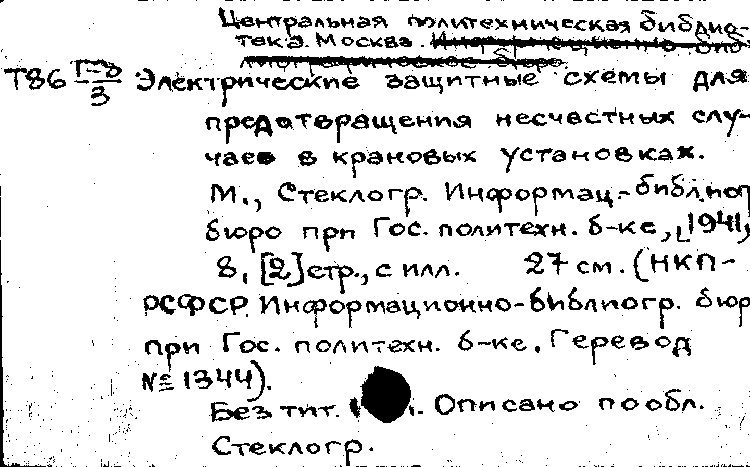 Центральная политехническая библио-
тека. Москва. Информационно-библ
лиографическое бюро.
Т86 Г-8/3 Электрические защитные схемы для
предотвращения несчастных слу-
чаев в крановых установках.
М., Стеклогр. Информац.-библиогр
бюро при Гос. политехн. б-ке, [1941]
8, [2] стр., с илл. 27 см. (НКП-
РСФСР. Информационно-библиогр. бюр
при Гос. политехн. б-ке. Перевод
№ 1344).
Без тит. л. Описано по обл.
Стеклогр.